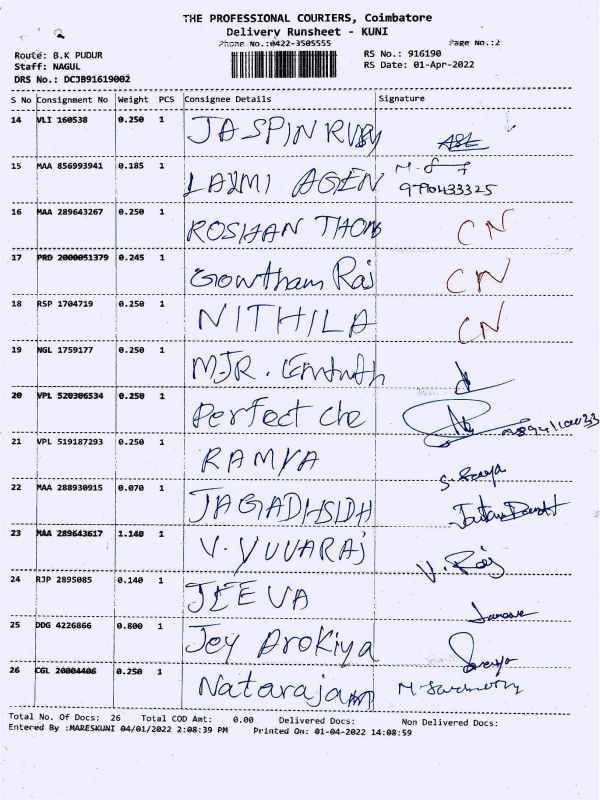 THE PROFESSIONAL COURIERS, Coimbatore
Delivery Runsheet - KUNI
Phone No.:0422-3505555 Page No.:2
Route: B.K PUDUR RS No.: 916190
Staff: NAGUL RS Date: 01-Apr-2022
DRS No.: DCJB91619002
S No Consignment No Weight PCS Consignee Details Signature
14 VLI 160538 0.250 1 JASPIN RUBY
15 MAA 856993941 0.185 1 LAXMI AGEN
16 MAA 289643267 0.250 1 ROSHAN THOM CN
17 PRD 2000051379 0.245 1 Gowtham Raj CN
18 RSP 1704719 0.250 1 NITHILA CN
19 NGL 1759177 0.250 1 MJR.
20 VPL 520306534 0.250 1 Perfect Che
21 VPL 519187293 0.250 1 RAMYA
22 MAA 288930915 0.070 1 JAGADHSIDH
23 MAA 289643617 1.140 1 V.YUVARAJ V. Raj
24 RJP 2895085 0.140 1 JEEVA
25 DDG 4226866 0.800 1 Joy Arokiya
26 CGL 20004406 0.250 1 Natarajam
Total No. Of Docs: 26 Total COD Amt: 0.00 Delivered Docs: Non Delivered Docs:
Entered By :MARESKUNI 04/01/2022 2:08:39 PM Printed On: 01-04-2022 14:08:59